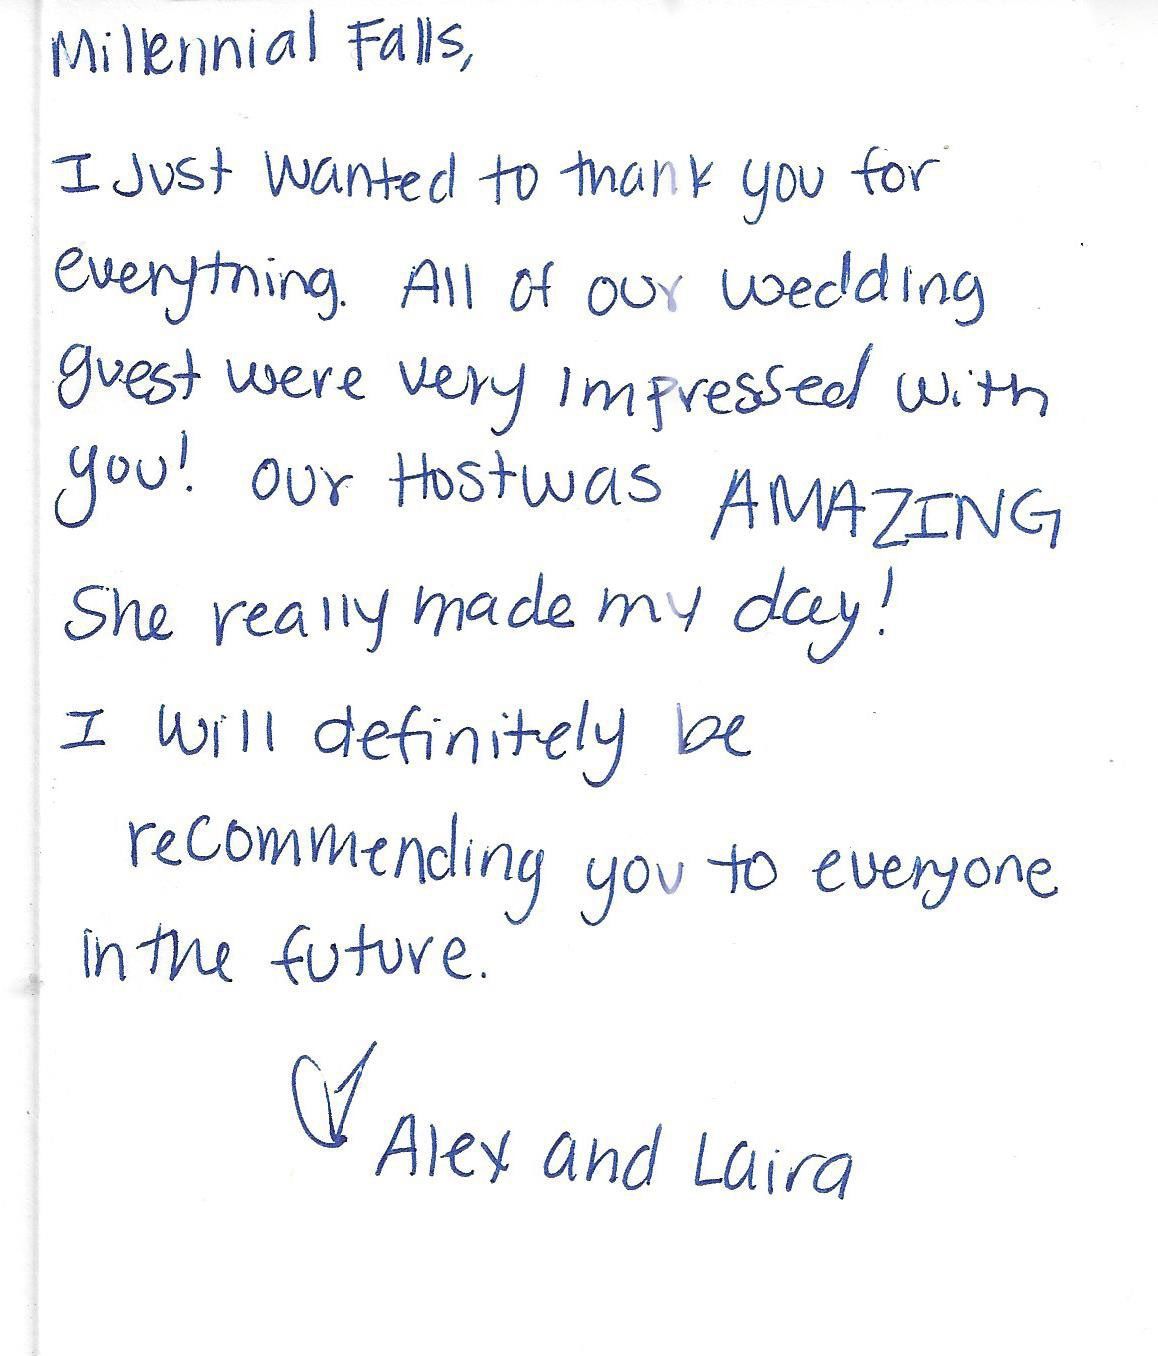 Millennial Falls,
I Just wanted to thank you for
everything. All of our wedding
guest were very impressed with
you! Our Host was AMAZING
She really made my day!
I will definitely be
recommending you to everyone
in the future.
Alex and Laira